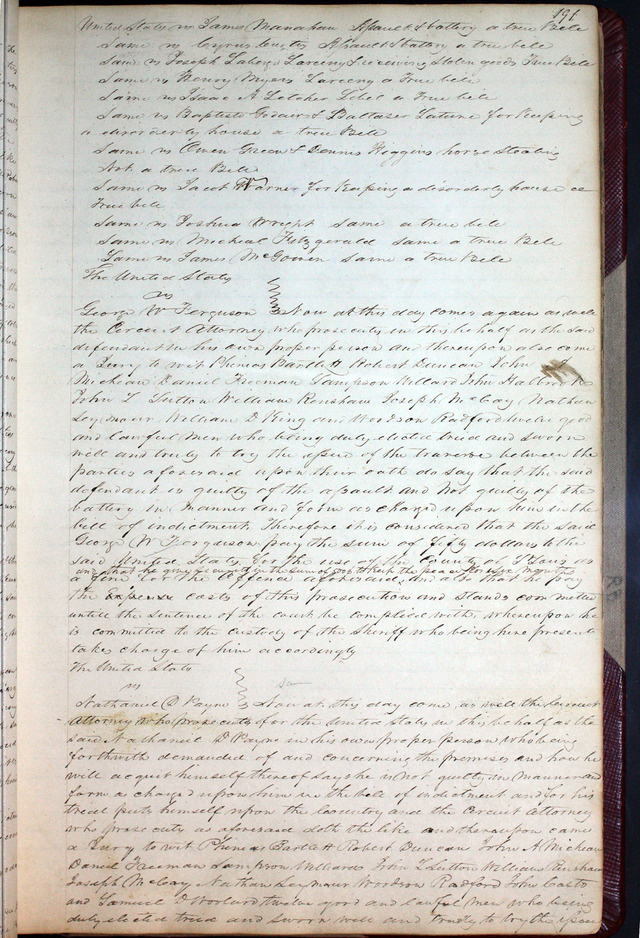 191
United States vs James Manahan Assault & battery a true Bele
Same vs Cyrus Assault & battery a true bele
Same vs Joseph Larceny & receiving Stolen goods True Bele
Same vs Henry Myers Larceny a True bele
Same vs Isaac A Letcher Libel a True bele
Same vs Baptiste Godair & Baltaser for Keeping
a disorderly house a true Bele
Same vs Owen Green & Dennis Higgins horse Stealing
Not a true Bele
Same vs Jacob Warner for Keeping a disorderly house a
True bele
Same vs Joshua Wright Same a true bele
Same vs Micheal Fitzgerald Same a true Bele
Same vs James McGowen Same a true Bele
The United States
vs
George W Ferguson Now at this day comes again as well
the Circuit Attorney who prosecutes in this behalf as the said
defendant in his own proper person and thereupon also come
a Jury to wit Phineas Bartlett Robert Duncan John
Michean Daniel Freeman Sampson Willard John
John L Sutton William Renshaw Joseph McCay Nathan
Seymour William D King Woodson Radford twelve good
and lawful men who being duly elected tried and sworn
well and truly to try the issue of the traverse between the
parties aforesaid upon their oath do say that the said
defendant is guilty of the assault and not guilty of the
battery in manner and form as charged upon him in the
bill of indictment Therefore it is considered that the said
George W Ferguson pay the sum of fifty dollars to the
said United States for the use of the County of St Louis as
and that he give security in the sum of to keep the peace for six months
a fine for the Offence aforesaid and also that he pay
the Expense costs of this prosecution and stands committed
until the sentence of the court be complied with, whereupon he
is committed to the custody of the Sheriff who being here present
takes charge of him accordingly
The United States
vs
Nathaniel D Payne Now at this day come as well the Circuit
Attorney who prosecutes for the United States in this behalf as the
said Nathaniel D Payne in his own proper person who being
forthwith demanded of and concerning the premises and how he
will acquit himself thereof says he is not guilty in manner and
form a charged upon him in the bele of indictment and for his
trial puts himself upon the Country and the Circuit Attorney
who prosecutes as aforesaid doth the like and thereupon came
a Jury to wit Phineas Bartlett Robert Duncan John A Michean
Daniel Freeman Sampson Willard John L Sutton William Renshaw
Joseph McCay Nathan Seymour Woodson Radford John
and Samuel D twelve good and lawful men who being
duly elected tried and sworn well and truly to try the issue